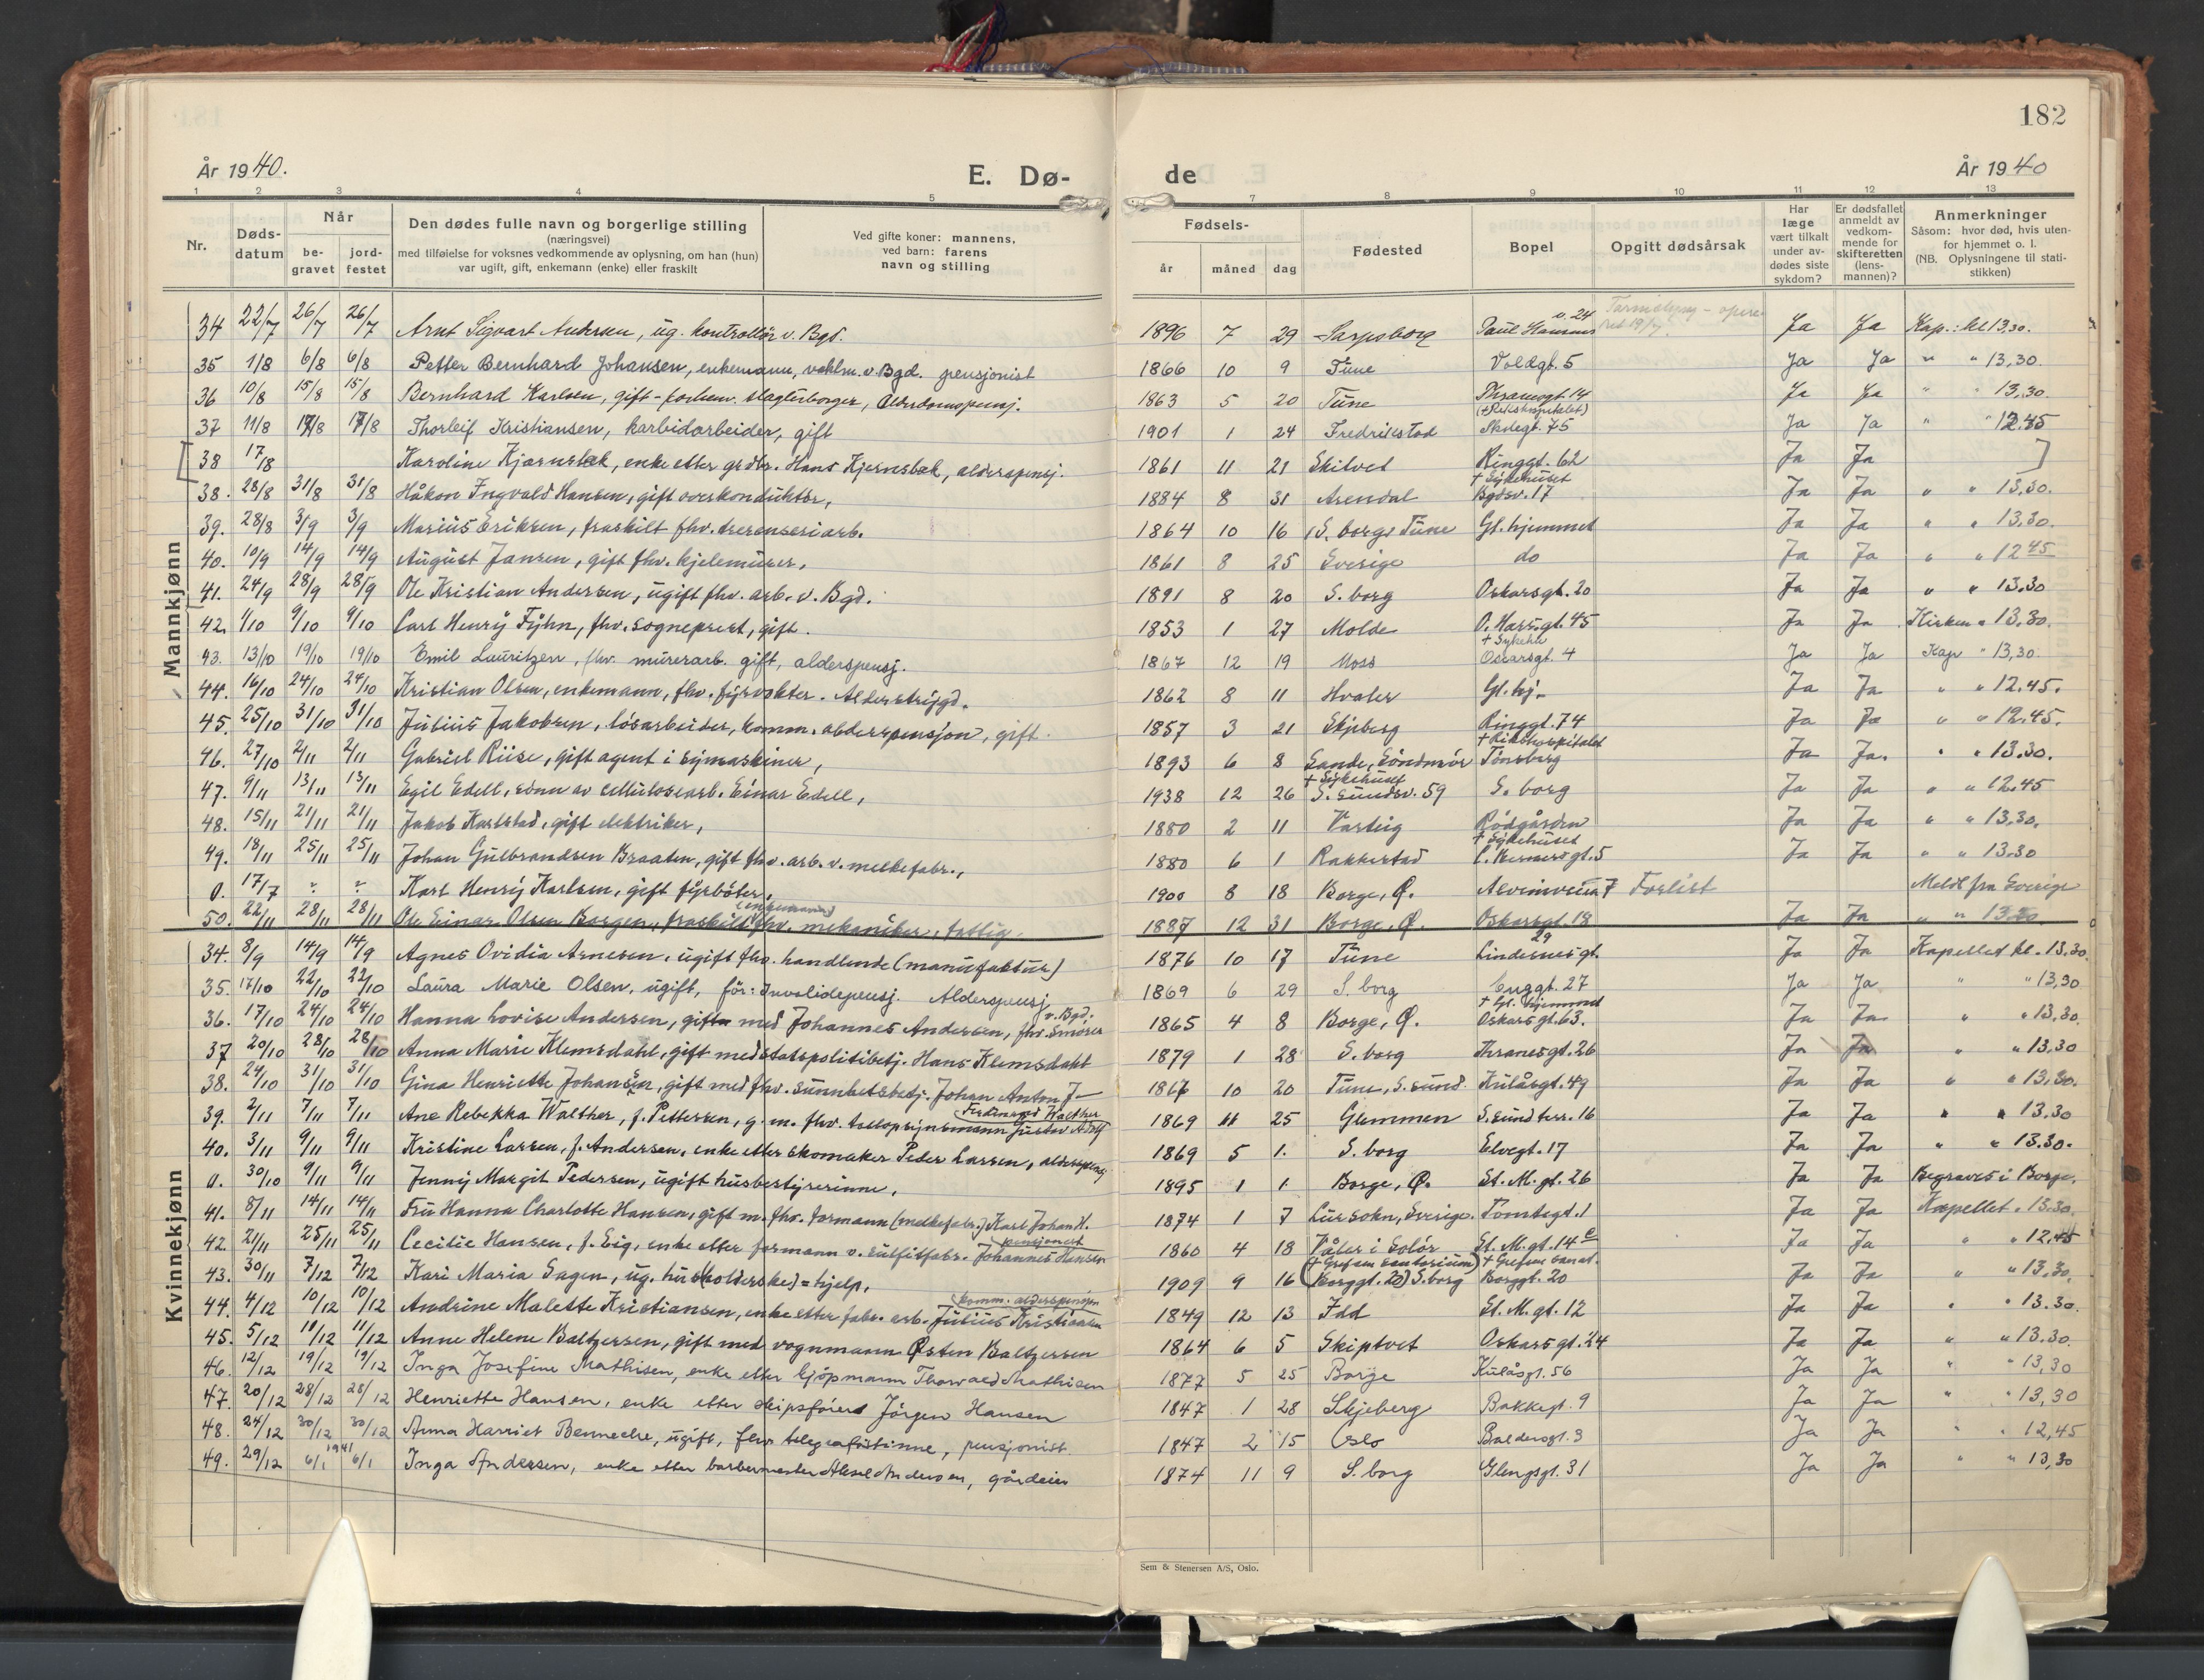 182
År 1940.
E. Dø-
de
År 1940
1 2 3 4 5 7 8 9 10 11 12 13
Nr.
Døds-
datum
Når
be-
gravet
jord-
festet
Den dødes fulle navn og borgerlige stilling
(næringsvei)
med tilføielse for voksnes vedkommende av oplysning, om han (hun)
var ugift, gift, enkemann (enke) eller fraskilt
Ved gifte koner: mannens,
ved barn: farens
navn og stilling
Fødsels-
år måned dag
Fødested
Bopel
Opgitt dødsårsak
Har
læge
vært tilkalt
under av-
dødes siste
sykdom?
Er dødsfallet
anmeldt av
vedkom-
mende for
skifteretten
(lens-
mannen)?
Anmerkninger
Såsom: hvor død, hvis uten-
for hjemmet o. l.
(NB. Oplysningene til stati-
stikken)
Mannkjønn
34 22/7 26/7 26/7 Arnt Sigvart Andersen, ug. kontrollör v. Bgd. 1896 7 29 Sarpsborg Paul Hansens v. 24 Ja Ja Kap.: kl 13,30.
35 1/8 6/8 6/8 Petter Bernhard Johansen, enkemann, vaktm. v. Bgd. pensjonist 1866 10 9 Tune Voldgt. 5 Ja Ja " " 13,30.
36 10/8 15/8 15/8 Bernhard Karlsen, gift - forhenv. slagterborger, Alderdomspensj. 1863 5 20 Tune Thranesgt 14 Ja Ja " " 13,30.
37 11/8 17/8 17/8 Thorleif Kristiansen, karbidarbeider, gift 1901 1 24 Fredrikstad (+Rikshospitalet) 75 Ja Ja " " 12.45
[38 17/8 Karoline Kjærnsbæk, enke etter grdbr. Hans Kjernsbæk, alderspensj. 1861 11 21 Skitvet Ringgt. 62 Ja Ja ]
38. 28/8 31/8 31/8 Håkon Ingvald Hansen, gift overkonduktör, 1884 8 31 Arendal + Sykehuset Bgdsv. 17 Ja Ja " " 13,30.
39. 28/8 3/9 3/9 Marius Eriksen, fraskilt fhv. arb. 1864 10 16 S. borg, Tune Gl. hjemmet Ja Ja " " 13.30.
40. 10/9 14/9 14/9 August Jansen, gift fhv. kjelemurer, 1861 8 25 Sverige do Ja Ja " " 12 45
41. 24/9 28/9 28/9 Ole Kristian Andersen, ugift fhv. arb. v. Bgd. 1891 8 20 S. borg Oskarsgt. 20 Ja Ja " " 13.30
42. 1/10 9/10 9/10 Carl Henrÿ Fÿhn, fhv. sogneprest, gift. 1853 1 27 Molde O. Haralsgt. 45 Ja Ja Kirken " 13.30.
43. 13/10 19/10 19/10 Emil Lauritzen, fhv. murerarb. gift, alderspensj. 1867 12 19 Moss + Sykeh. Oscarsgt. 4 Ja Ja Kap " 13,30.
44. 16/10 24/10 24/10 Kristian Olsen, enkemann, fhv. fyrvokter. Alderstrygd. 1862 8 11 Hvaler Gl. hj. Ja Ja " " 12.45.
45. 25/10 31/10 31/10 Julius Jakobsen, lösarbeider, komm. alderspensjon, gift. 1857 3 21 Skjeberg Ringgt. 74 Ja Ja " " 12.45.
46. 27/10 2/11 2/11 Gabriel Riise, gift agent i symaskiner, 1893 6 8 Sande, Söndmör + Rikshospitalet Tönsberg Ja Ja. " " 13.30.
47. 9/11 13/11 13/11 Egil Edell, sönn av cellulosearb. Einar Edell, 1938 12 26 + Sykehuset S. sundsv. 59 S. borg Ja Ja " " 12.45
48. 15/11 21/11 21/11 Jakob Karlstad, gift elektriker, 1880 2 11 Varteig Rödgården Ja Ja " " 13,30.
49. 18/11 25/11 25/11 Johan Gulbrandsen Braaten, gift fhv. arb. v. melkefabr., 1880 6 1 Rakkestad + Sykehuset C. Berners gt. 5 Ja Ja " " 13.30
0. 17/7 ? ? Karl Henry Karlsen, gift fyrböter, 1900 8 18 Borge, Ø. Alveimveien 7 Forlist Meldt fra Sverige
50. 22/11 28/11 28/11 Ole Einar Olsen Borgen, fraskilt (enkemann) fhv. mekaniker, fattig. 1887 12 31 Borge, Ø. Oskarsgt. 18 Ja Ja " " 13.30
Kvinnekjønn
34. 8/9 14/9 14/9 Agnes Ovidia Arnesen, ugift fhv. handlende (manufaktur) 1876 10 17 Tune Lindernesgt. 29 Ja Ja Kapellet kl. 13,30.
35. 17/10 22/10 22/10 Laura Marie Olsen, ugift, för: Invalidepensj. Alderspensj. 1869 6 29 S. borg Enggt. 27 Ja Ja " " 13,30
36. 17/10 24/10 24/10 Hanna Lovise Andersen, gift med Johannes Andersen, fhv. Smörer v. Bgd. 1865 4 8 Borge, Ø. + Gl. hjemmet Oskarsgt. 63. Ja Ja " " 13,30.
37 20/10 28/10 28/10 Anna Marie Klemsdahl, gift med statspolitibetj. Hans Klemsdahl 1879 1 28 S. borg Thranesgt. 26 Ja Ja " " 13.30
38. 24/10 31/10 31/10 Gina Henriette Johansen, gift med fhv. sunnhetsbetj. Johan Anton J— 1867 10 20 Tune, S. sund. Kulåsgt. 49 Ja Ja " " 13,30.
39. 2/11 7/11 7/11 Ane Rebekka Walther, f. Pettersen, g. m. fhv. tolloppsynsmann Gustav Adolf Ferdinand Walther 1869 11 25 Glemmen S. sund terr. 16 Ja Ja " " 13.30
40. 3/11 9/11 9/11 Kristine Larsen, f. Andersen, enke etter skomaker Peder Larsen, alderspensj. 1869 5 1. S. borg Elvegt. 17 Ja Ja " " 13.30.
0. 30/10 9/11 9/11 Jenny Margit Pedersen, ugift husbestyrerinne, 1895 1 1 Borge, Ø. St. M. gt. 26 Ja Ja Begraves i Borge.
41. 8/11 14/11 14/11 Fru Hanna Charlotte Hansen, gift m. fhv. formann (melkefabr.) Karl Johan H. 1874 1 7 Lur sokn, Sverige. Tomtegt. 1 Ja Ja Kapellet. 13.30.
42. 21/11 25/11 25/11 Cecilie Hansen, f. Eig, enke etter formann v. sulfitfabr. Johannes Hansen pensjonert 1860 4 18 Våler i Solör St. M. gt. 14 c Ja Ja " " 12,45
43. 30/11 7/12 7/12 Kari Maria Sagen, ug. hus(holderske) = hjelp, 1909 9 16 (+ Grefsen sanatorium) (Borggt. 20) S. borg + Grefsen sanat. Borggt. 20 Ja Ja " " 13,30.
44. 4/12 10/12 10/12 Andrine Malette Kristiansen, enke etter fabr. arb. Julius Kristiansen komm. alderspensjon 1849 12 13 Idd St. M. gt. 12 Ja Ja " " 13.30.
45. 5/12 11/12 11/12 Anne Helene Baltzersen, gift med vognmann Østen Baltzersen 1864 6 5 Skiptvet Oskarsgt. 24 Ja Ja " " 13.30.
46. 12/12 19/12 19/12 Inga Josefine Mathisen, enke etter kjöpmann Thorvald Mathisen 1877 5 25 Borge Kulåsgt. 56 Ja Ja " " 13,30
47. 20/12 28/12 28/12 Henriette Hansen, enke etter skipsförer Jörgen Hansen 1847 1 28 Skjeberg Bakkegt. 9 Ja Ja " " 13,30
48. 24/12 30/12 30/12 Anna Harriet Bennecke, ugift, fhv. telegrafistinne, pensjonist. 1847 2 15 Oslo Baldersgt. 3 Ja Ja " " 12,45
49. 29/12 6/1 1941 6/1 Inga Andersen, enke etter barbermester Aksel Andersen, gårdeier 1874 11 9 S. borg Glengsgt. 31 Ja Ja " " 13,30
Sem & Stenersen A/S, Oslo.